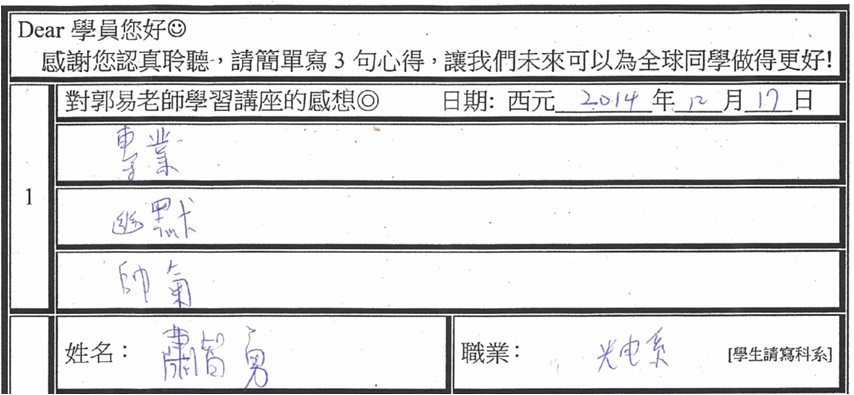 Dear 學員您好☺
感謝您認真聆聽，請簡單寫 3 句心得，讓我們未來可以為全球同學做得更好!
對郭易老師學習講座的感想◎ 日期: 西元 2014 年 12 月 17 日
1
專業
幽默
帥氣
姓名： 蕭智勇 職業： 光电系 [學生請寫科系]